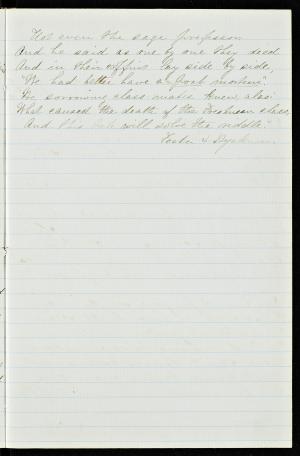 Not even the sage professor
And he said as one by one they died
And in their coffins lay side by side,
"We had better have a post mortem".
The sorrowing class mates knew also
What caused the death of the Freshman class,
And this will solve the riddle."
Foster &